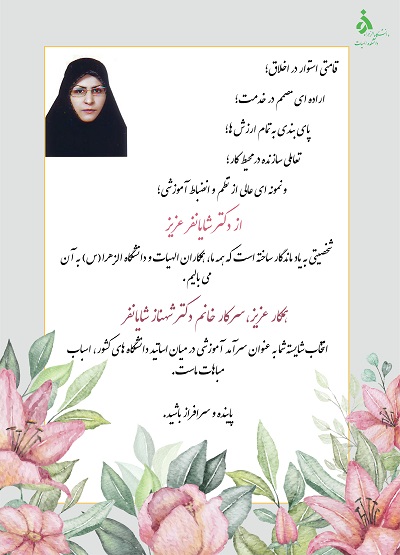 دانشگاه الزهرا
دانشکده الهیات
قامتی استوار در اخلاق؛
اراده ای مصمم در خدمت؛
پای بندی به تمام ارزش ها؛
تعاملی سازنده در محیط کار؛
و نمونه ای عالی از نظم و انضباط آموزشی؛
از دکتر شایانفر عزیز
شخصیتی به یاد ماندگار ساخته است که همه ما، همکاران الهیات و دانشگاه الزهرا (س) به آن
می بالیم.
همکار عزیز، سرکار خانم دکتر شهناز شایانفر
انتخاب شایسته شما به عنوان سرآمد آموزشی در میان اساتید دانشگاه های کشور، اسباب
مباهات ماست.
پاینده و سرافراز باشید.